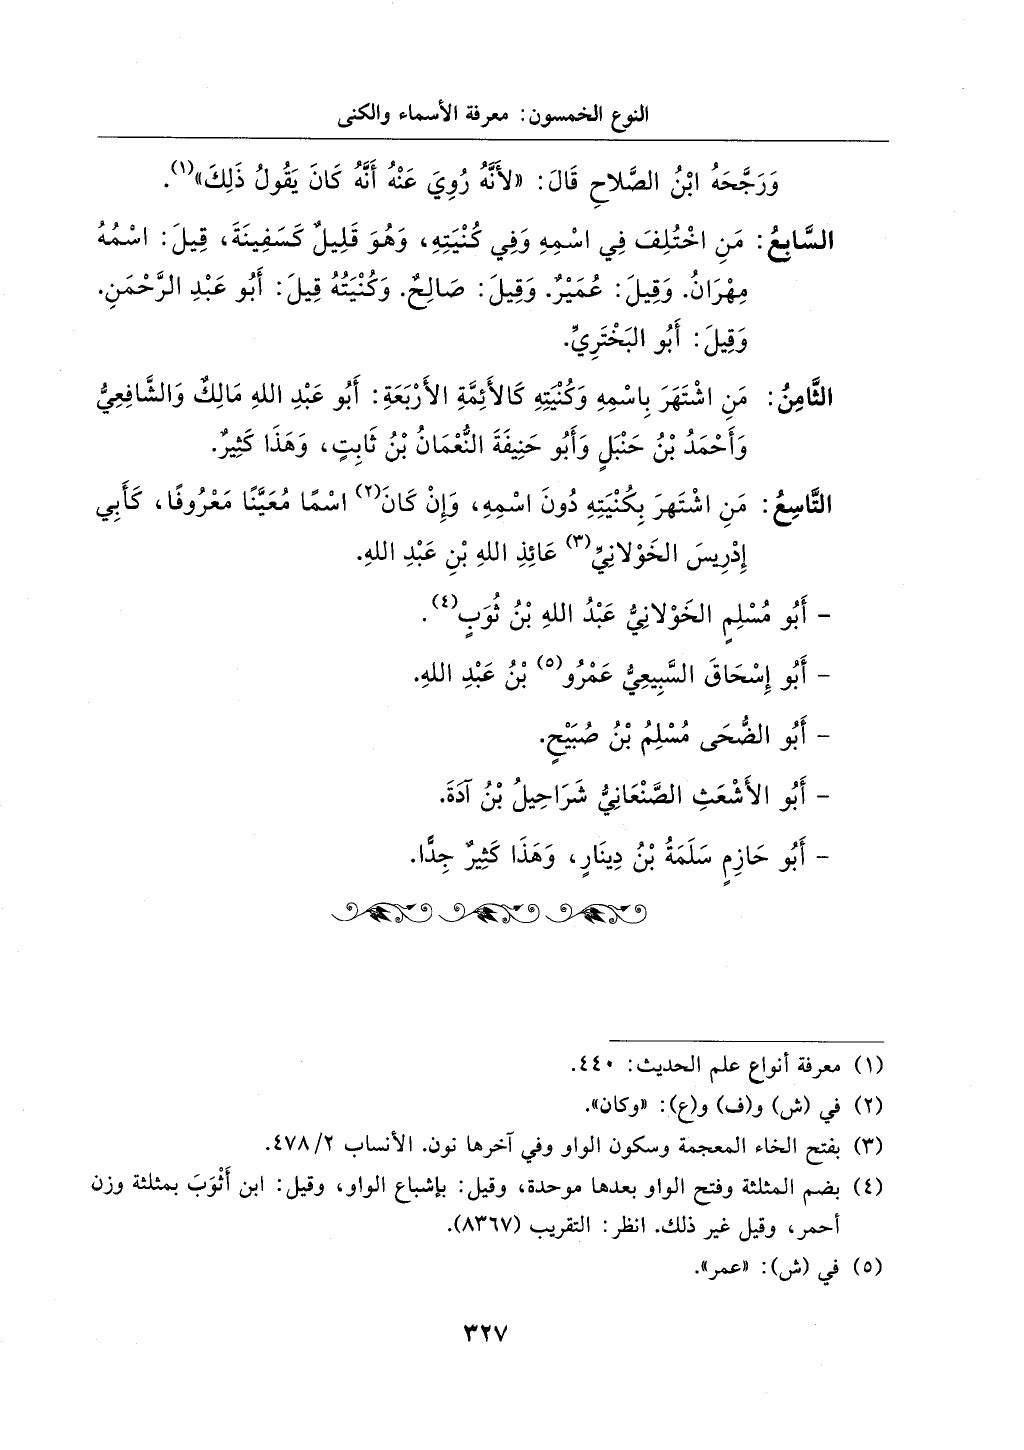 النوع الخمسون: معرفة الأسماء والكنى
وَرَجَّحَهُ ابْنُ الصَّلَاحِ قَالَ: «لأَنَّهُ رُوِيَ عَنْهُ أَنَّهُ كَانَ يَقُولُ ذَلِكَ»(١).
السَّابِعُ: مَنِ اخْتُلِفَ فِي اسْمِهِ وَفِي كُنْيَتِهِ، وَهُوَ قَلِيلٌ كَسَفِينَةَ، قِيلَ: اسْمُهُ
مِهْرَانُ. وَقِيلَ: عُمَيْرٌ. وَقِيلَ: صَالِحٌ. وَكُنْيَتُهُ قِيلَ: أَبُو عَبْدِ الرَّحْمَنِ.
وَقِيلَ: أَبُو البَخْتَرِيِّ.
الثَّامِنُ: مَنِ اشْتَهَرَ بِاسْمِهِ وَكُنْيَتِهِ كَالأَئِمَّةِ الأَرْبَعَةِ: أَبُو عَبْدِ اللهِ مَالِكٌ وَالشَّافِعِيُّ
وَأَحْمَدُ بْنُ حَنْبَلٍ وَأَبُو حَنِيفَةَ النُّعْمَانُ بْنُ ثَابِتٍ، وَهَذَا كَثِيرٌ.
التَّاسِعُ: مَنِ اشْتَهَرَ بِكُنْيَتِهِ دُونَ اسْمِهِ، وَإِنْ كَانَ(٢) اسْمًا مُعَيَّنًا مَعْرُوفًا، كَأَبِي
إِدْرِيسَ الخَوْلَانِيِّ(٣) عَائِذِ اللهِ بْنِ عَبْدِ اللهِ.
- أَبُو مُسْلِمٍ الخَوْلَانِيُّ عَبْدُ اللهِ بْنُ ثُوَبٍ(٤).
- أَبُو إِسْحَاقَ السَّبِيعِيُّ عَمْرُو(٥) بْنُ عَبْدِ اللهِ.
- أَبُو الضُّحَى مُسْلِمُ بْنُ صُبَيْحٍ.
- أَبُو الأَشْعَثِ الصَّنْعَانِيُّ شَرَاحِيلُ بْنُ آدَةَ.
- أَبُو حَازِمٍ سَلَمَةُ بْنُ دِينَارٍ، وَهَذَا كَثِيرٌ جِدًّا.
(١) معرفة أنواع علم الحديث: ٤٤٠.
(٢) في (ش) و(ف) و(ع): «وكان».
(٣) بفتح الخاء المعجمة وسكون الواو وفي آخرها نون. الأنساب ٤٧٨/٢.
(٤) بضم المثلثة وفتح الواو بعدها موحدة، وقيل: بإشباع الواو، وقيل: ابن أَثْوَبَ بمثلثة وزن
أحمر، وقيل غير ذلك. انظر: التقريب (٨٣٦٧).
(٥) في (ش): «عمر».
٣٢٧